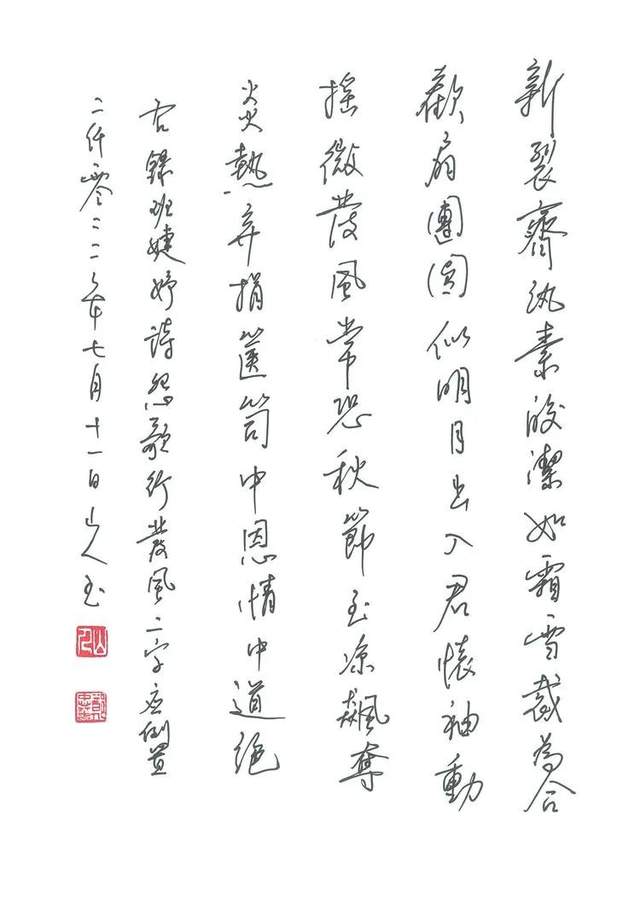 新裂齊紈素皎潔如霜雪裁為合
歡扇團圓似明月出入君懷袖動
搖微發風常恐秋節至涼飆奪
炎熱弃捐篋笥中恩情中道絕
右錄班婕妤詩怨歌行發風二字应倒置
二仟零二二年七月十一日山人
山人